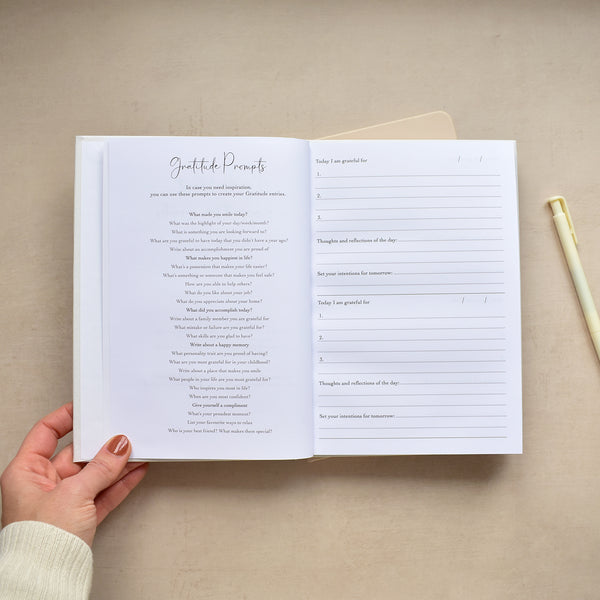 Gratitude Prompts
In case you need inspiration,
you can use these prompts to create your Gratitude entries.
What made you smile today?
What was the highlight of your day/week/month?
What is something you are looking forward to?
What are you grateful to have today that you didn't have a year ago?
Write about an accomplishment you are proud of
What makes you happiest in life?
What's a possession that makes your life easier?
What's something or someone that makes you feel safe?
How are you able to help others?
What do you like about your job?
What do you appreciate about your home?
What did you accomplish today?
Write about a family member you are grateful for
What mistake or failure are you grateful for?
What skills are you glad to have?
Write about a happy memory
What personality trait are you proud of having?
What are you most grateful for in your childhood?
Write about a place that makes you smile
What people in your life are you most grateful for?
Who inspires you most in life?
When are you most confident?
Give yourself a compliment
What's your proudest moment?
List your favourite ways to relax
Who is your best friend? What makes them special?
Today I am grateful for / /
1.
2.
3.
Thoughts and reflections of the day:
Set your intentions for tomorrow:
Today I am grateful for / /
1.
2.
3.
Thoughts and reflections of the day:
Set your intentions for tomorrow: